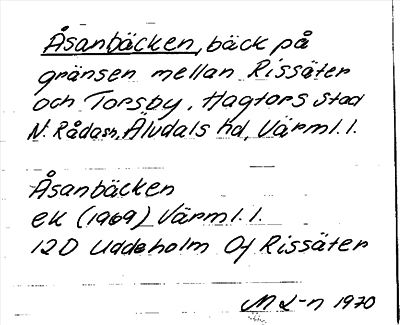 Åsanbäcken, bäck på
gränsen mellan Rissäter
och Torsby, Hagfors stad
N. Rådasn, Älvdals hd, Värml. l.
Åsanbäcken
ek (1969) Värml. l.
12D Uddeholm 0f Rissäter
M L-n 1970